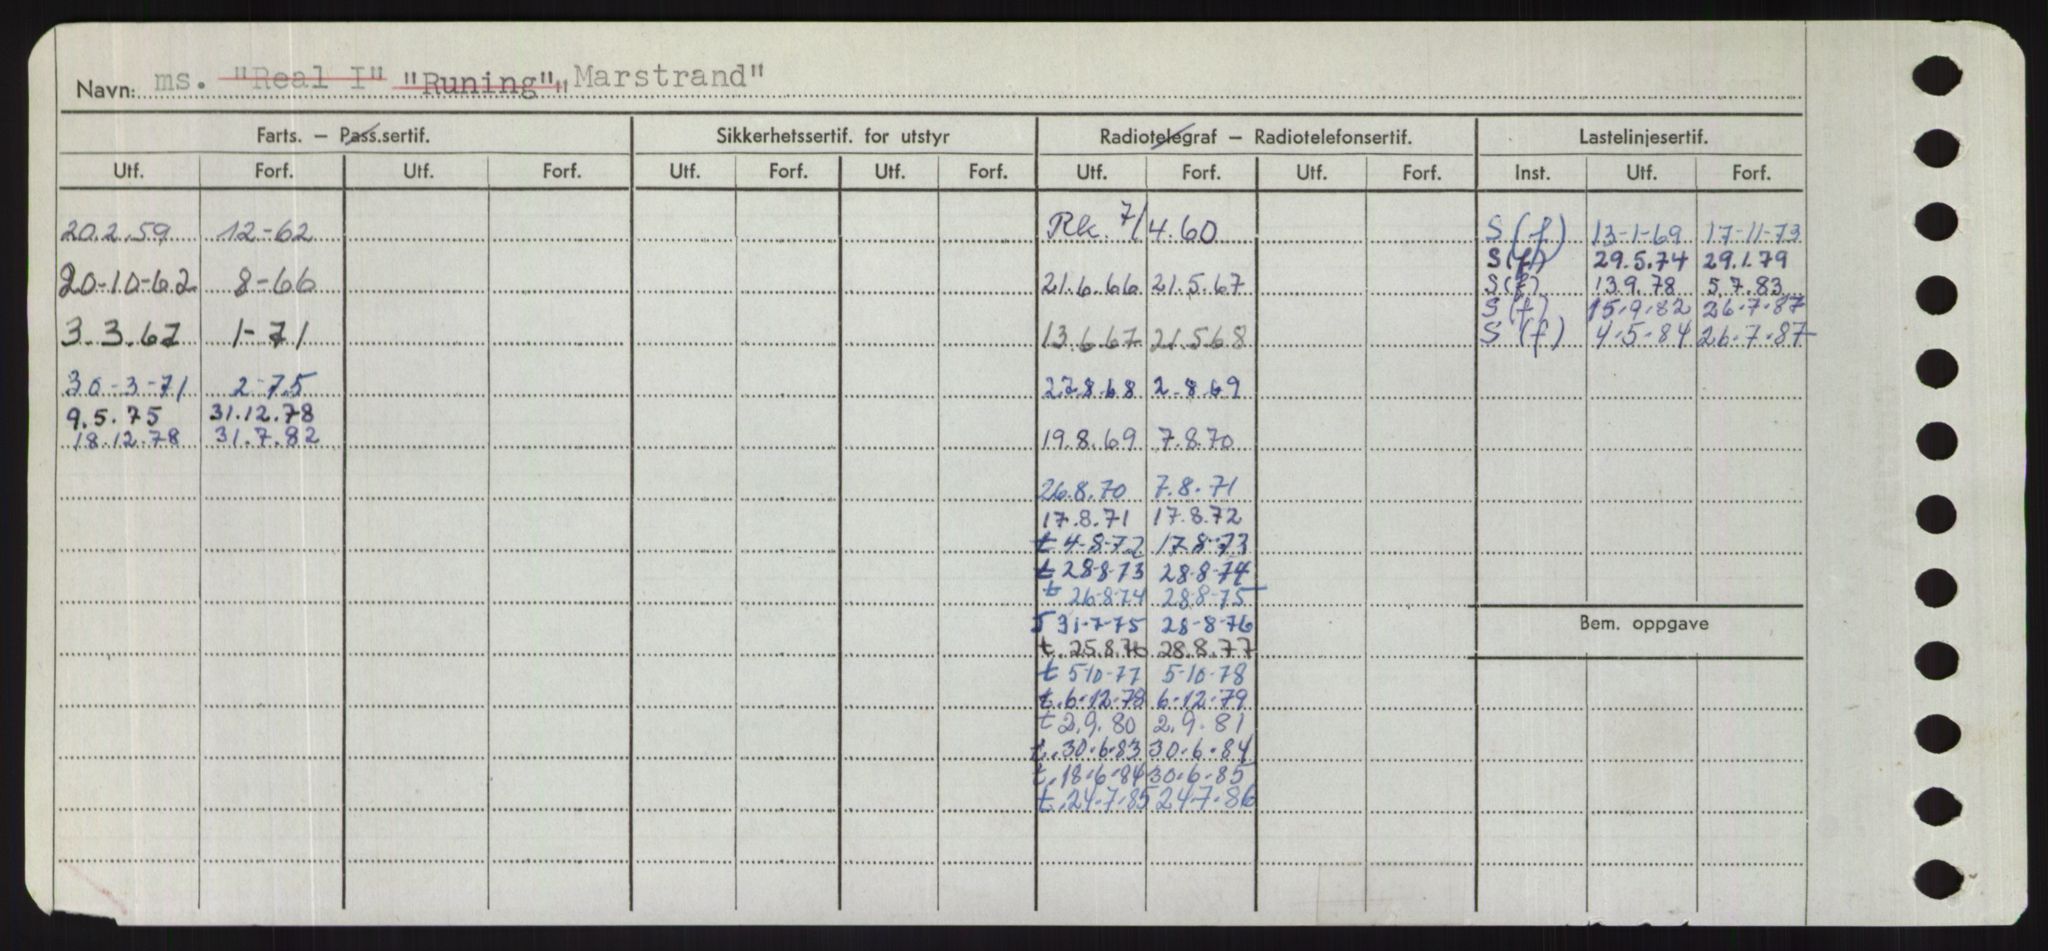 Navn: ms. "Real I" "Runing" "Marstrand"
Farts. – Pass.sertif. Sikkerhetssertif. for utstyr Radiotelegraf – Radiotelefonsertif. Lastelinjesertif.
Utf. Forf. Utf. Forf. Utf. Forf. Utf. Forf. Utf. Forf. Utf. Forf. Inst. Utf. Forf.
20.2.59 12-62
20-10-62 8-66
3.3.67 1-71
30-3-71 2-75
9.5.75 31.12.78
18.12.78 31.7.82
Rk. 7/4.60
21.6.66 21.5.67
13.6.67 21.5.68
27.8.68 2.8.69
19.8.69 7.8.70
26.8.70 7.8.71
17.8.71 17.8.72
t 4-8-72 17.8-73
t 28-8-73 28-8-74
t 26-8-74 28.8-75
T 31-7-75 28-8-76
t. 25.8.76 28.8.77
t 5-10-77 5-10-78
t. 6-12-78 6-12-79
t 2.9.80 2.9.81
t. 30.6.83 30.6.84
t. 18.6.84 30.6.85
t. 24.7.85 24.7.86
S (f) 13-1-69 17-11-73
S (f) 29.5.74 29.1.79
S (f) 13.9.78 5.7.83
S (f) 15.9.82 26.7.87
S (f) 4.5.84 26.7.87
Bem. oppgave